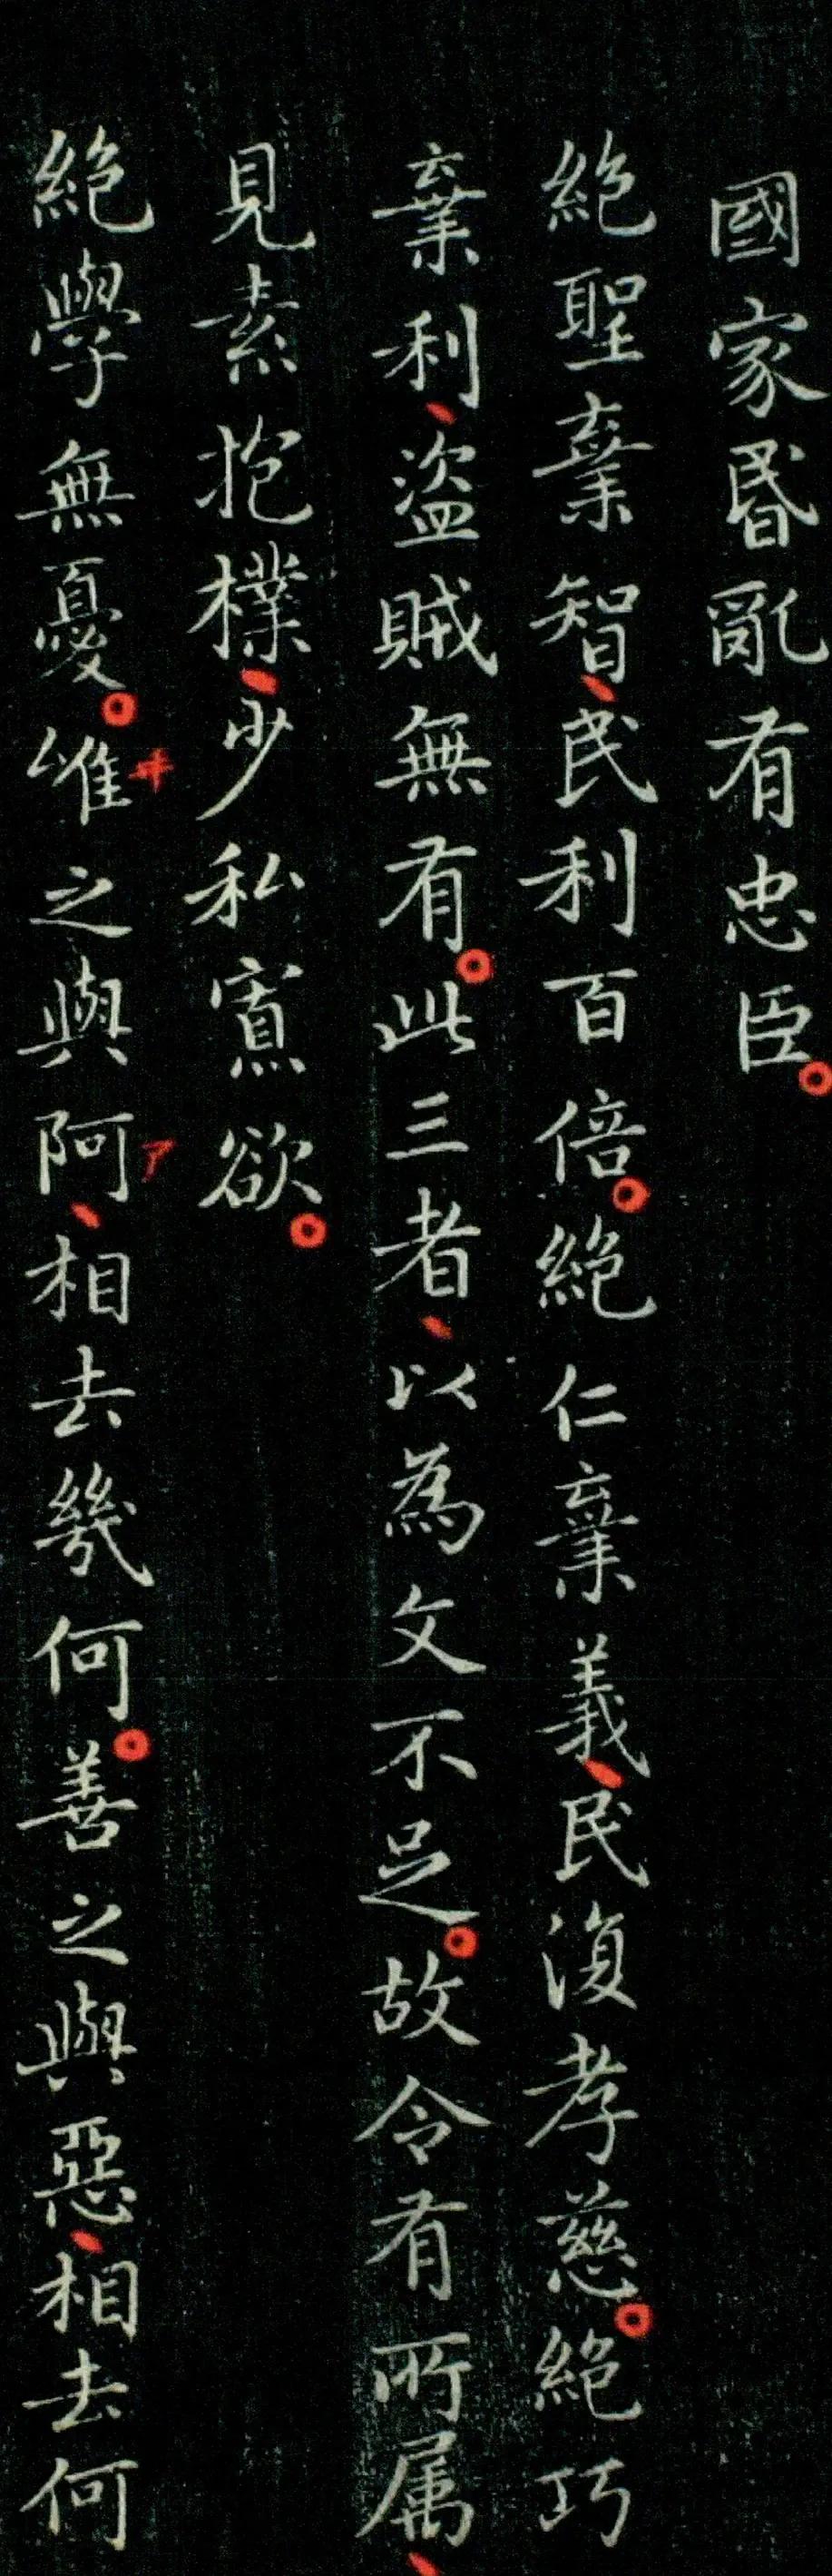 國家昬亂有忠臣。
絕聖棄智、民利百倍。絕仁棄義、民復孝慈。絕巧
棄利、盜賊無有。此三者、以為文不足。故令有所属、
見素抱樸、少私寡欲。
絕學無憂。唯之與阿、相去幾何。善之與惡、相去何
ヰ
ア